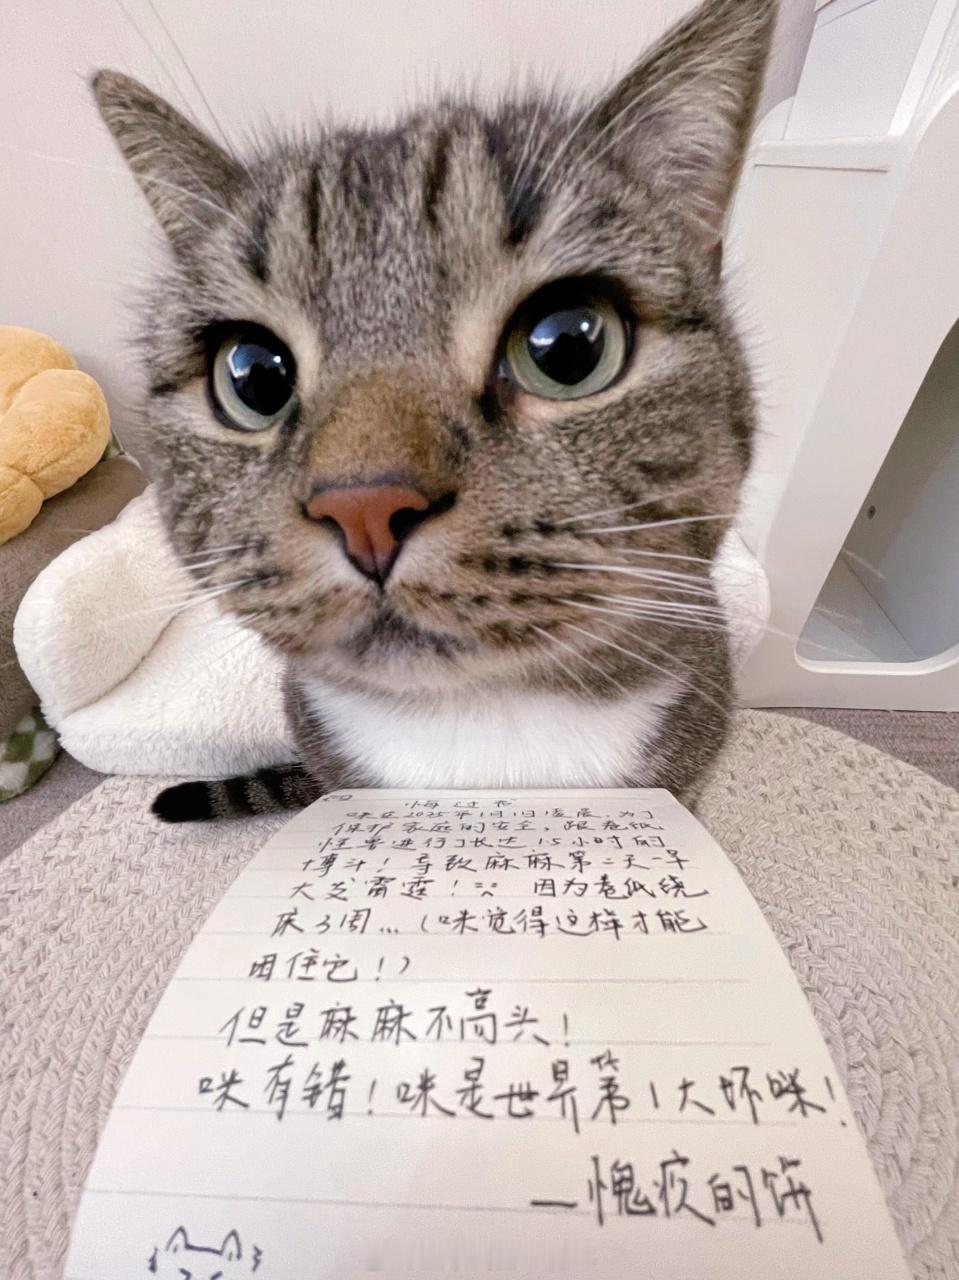 悔过书
咪在2025年1月1日凌晨,为了
保护家庭的安全,跟卷纸
怪兽进行了长达1.5小时的
博斗!导致麻麻第二天一早
大发雷霆!:: 因为卷纸绕
床3周...(咪觉得这样才能
困住它!)
但是麻麻不高头!
咪有错!咪是世界第1大坏咪!
—愧疚的饼